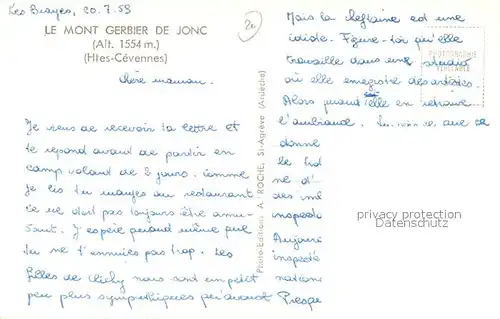 Les Brayes, 20.7.58
LE MONT GERBIER DE JONC
(Alt. 1554 m.)
(Htes-Cévennes)
chère maman.
Je viens de recevoir ta lettre et
te répond avant de partir en
camp volant de 2 jours. Comme
je lis tu manges au restaurant
ce ne doit pas toujours être amu-
sant. J'espère quand même que
tu ne t'ennuies pas trop. Les
filles de Clichy nous sont un petit
peu plus sympathiques qu'avant
Photo-Editions A. ROCHE, St-Agrève (Ardèche)
Mais la est une
idiote. Figure-toi qu'elle
travaille dans une studio
où elle enregistre des artistes.
Alors quand elle en retrouve
l'ambiance. que se
donne
le
ne d'
des
inspecte
Aujourd
inspecté
nations
Presque
PHOTOGRAPHIE
VERITABLE
privacy protection
Datenschutz